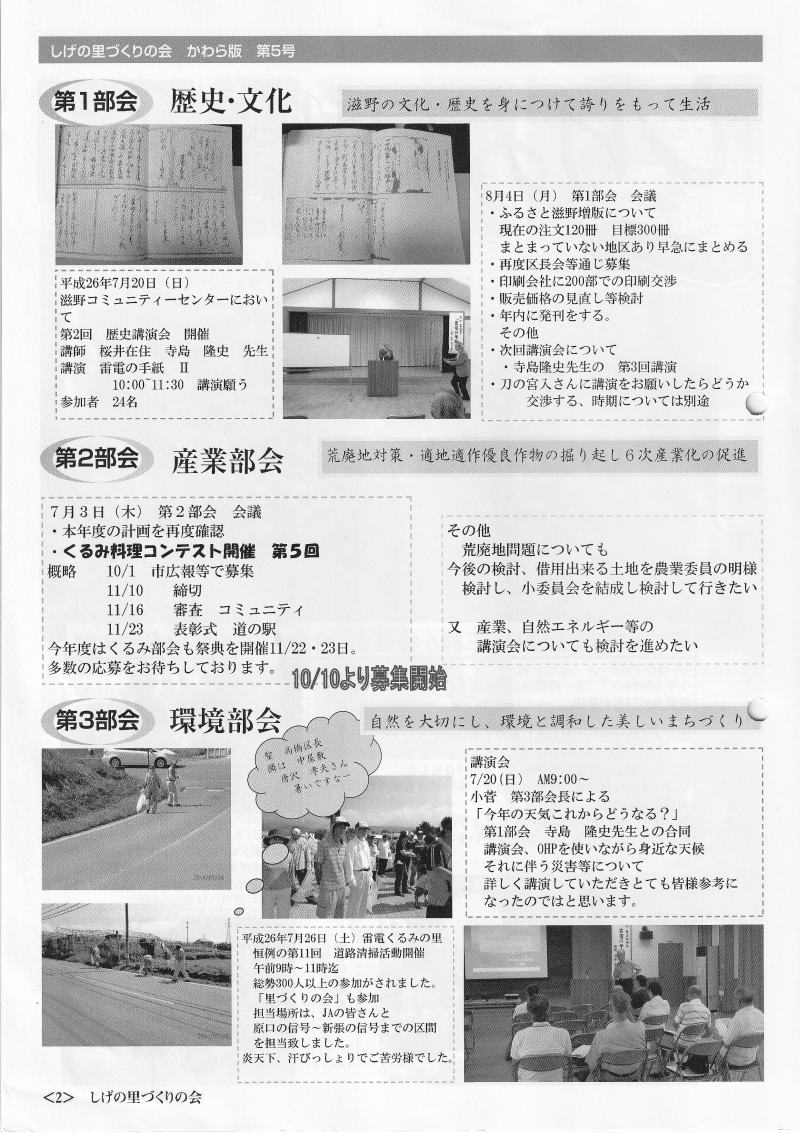 しげの里づくりの会　かわら版　第5号
第1部会　歴史・文化
滋野の文化・歴史を身につけて誇りをもって生活
平成26年7月20日（日）
滋野コミュニティーセンターにおい
て
第2回　歴史講演会　開催
講師　桜井在住　寺島　隆史　先生
講演　雷電の手紙　Ⅱ
10:00~11:30　講演願う
参加者　24名
8月4日（月）　第1部会　会議
・ふるさと滋野増版について
現在の注文120冊　目標300冊
まとまっていない地区あり早急にまとめる
・再度区長会等通じ募集
・印刷会社に200部での印刷交渉
・販売価格の見直し等検討
・年内に発刊をする。
その他
・次回講演会について
・寺島隆史先生の　第3回講演
・刀の宮入さんに講演をお願いしたらどうか
交渉する、時期については別途
第2部会　産業部会
荒廃地対策・適地適作優良作物の掘り起し６次産業化の促進
７月３日（木）　第２部会　会議
・本年度の計画を再度確認
・くるみ料理コンテスト開催　第５回
概略　10/1　市広報等で募集
11/10　締切
11/16　審査　コミュニティ
11/23　表彰式　道の駅
今年度はくるみ部会も祭典を開催11/22・23日。
多数の応募をお待ちしております。
10/10より募集開始
その他
荒廃地問題についても
今後の検討、借用出来る土地を農業委員の明様
検討し、小委員会を結成し検討して行きたい
又　産業、自然エネルギー等の
講演会についても検討を進めたい
第3部会　環境部会
自然を大切にし、環境と調和した美しいまちづくり
聖　高橋区長
隣は　中屋敷
唐沢　孝夫さん
暑いですなー
講演会
7/20(日)　AM9:00～
小菅　第3部会長による
「今年の天気これからどうなる？」
第1部会　寺島　隆史先生との合同
講演会、OHPを使いながら身近な天候
それに伴う災害等について
詳しく講演していただきとても皆様参考に
なったのではと思います。
平成26年7月26日（土）雷電くるみの里
恒例の第11回　道路清掃活動開催
午前9時～11時迄
総勢300人以上の参加がされました。
「里づくりの会」も参加
担当場所は、JAの皆さんと
原口の信号～新張の信号までの区間
を担当致しました。
炎天下、汗びっしょりでご苦労様でした。
<2>　しげの里づくりの会